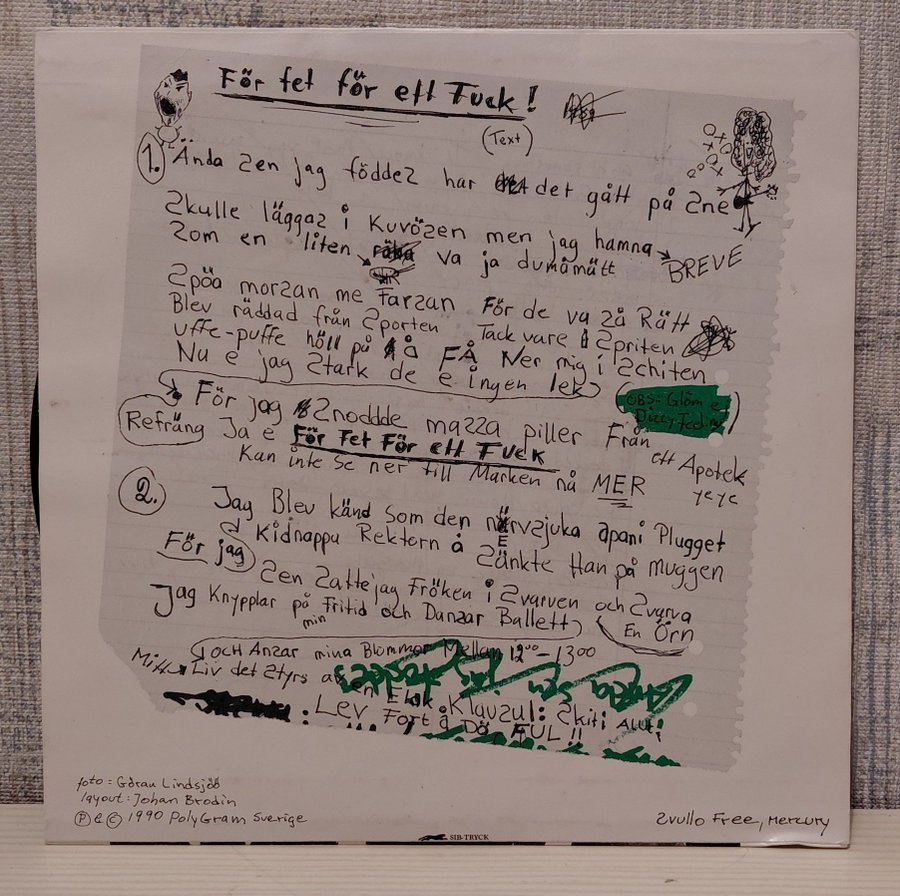 För fet för ett Fuck!
(Text)
1. Ända 2en jag födde2 har det gått på 2ne
2kulle lägga2 i Kuvö2en men jag hamna BREVE
2om en liten va ja dumåmätt
2pöa mor2an me Far2an För de va 2å Rätt
Blev räddad från 2porten Tack vare 2priten
uffe-puffe höll på å FÅ Ner mig i 2chiten
Nu e jag 2tark de e ingen lek
OBS: Glöm ej
För jag 2nodde ma22a piller Från ett Apotek
Refräng Ja e För Fet För ett Fuck yeye
Kan inte se ner till Marken nå MER
2. Jag Blev känd som den närv2juka apan i Plugget
Kidnappu Rektorn å 2änkte Han på muggen
För jag
2en 2atte jag Fröken i 2varven och 2varva
En Örn
Jag Knypplar på min Fritid och Dan2ar Ballett
OCH An2ar mina Blommor Mellan 12⁰⁰-13⁰⁰
Mitt Liv det 2tyrs av en Elak Klau2ul: 2kit i Allt
: Lev Fort å Dö, FUL !!
foto = Göran Lindsjöö
layout: Johan Brodin
Ⓟ & © 1990 PolyGram Sverige
2vullo Free, Mercury
SIB-TRYCK